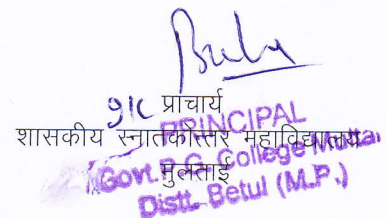 प्राचार्य
शासकीय स्नातकोत्तर महाविद्यालय
मुलताई
PRINCIPAL
Govt. P.G. College Multai
Distt. Betul (M.P.)